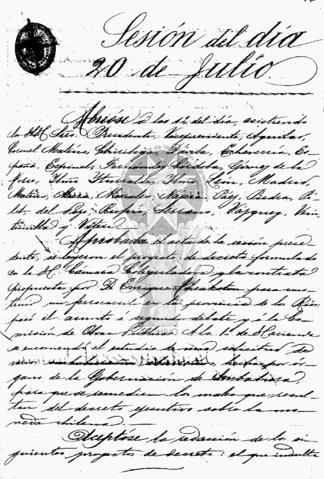 Sesión del día
20 de Julio.
Abrióse a las 12 del día, asistiendo
los HH. Sres. Presidente, Vicepresidente, Aguilar,
Coronel Mateus, Chiriboga, Dávila, Echeverría, Es
paña, Espinel, Fernández Córdoba, Gómez de la
Torre, León, Madrid,
Matéus, Mera, Morales, Nájera, Páez, Ponce,
del Pozo, Serrano, Vázquez, Vein
timilla y
Aprobada el acta de la sesión prece
dente, se leyeron el proyecto de decreto formulado
de la H. Cámara Colegisladora y la contrata
propuesta por D. Enrique para cons
truir un ferrocarril en la provincia de los Ríos.
Pasó el asunto a segundo debate y a la Co
misión de Obras Públicas. A la 1ª de Hacienda
se encomendó el estudio de una solicitud de
por ór
gano de la Gobernación de Imbabura
para que se remedien los males que resul
tan del decreto ejecutivo sobre la mo
neda chilena.
Aceptóse la redacción de los si
guientes proyectos de decreto: el que indulta